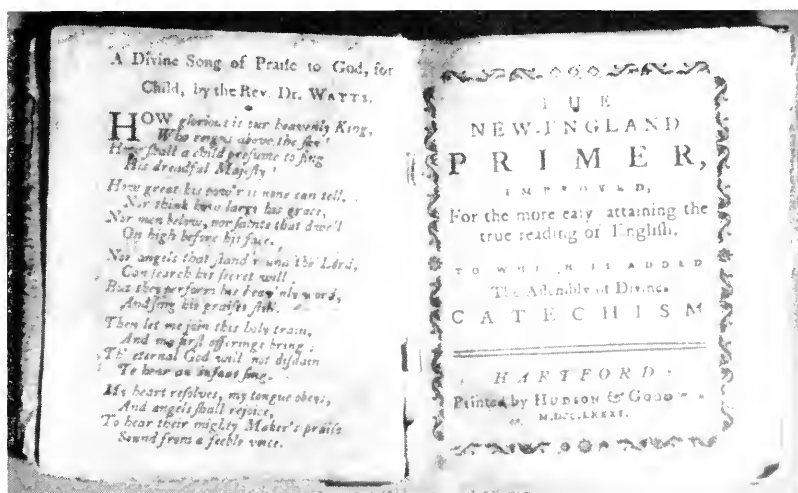 A Divine Song of Praiſe to God, for
Child, by the Rev. Dr. WATTS.
HOW glorious is our heavenly King,
Who reigns above the ſky!
How ſhall a child preſume to ſing
His dreadful Majeſty!
How great his pow'r is none can tell,
Nor think how large his grace,
Nor men below, nor ſaints that dwell
On high before his face.
Nor angels that ſtand round the Lord,
Can ſearch his ſecret will
But they perform his heav'nly word,
And ſing his praiſes ſtill.
Then let me join this holy train,
And my firſt offerings bring;
Th' eternal God will not diſdain
To hear an infant ſing.
My heart reſolves, my tongue obeys,
And angels ſhall rejoice,
To hear their mighty Maker's praiſe
Sound from a feeble voice.
THE
NEW-ENGLAND
PRIMER,
IMPROVED,
For the more eaſy attaining the
true reading of Engliſh.
TO WHICH IS ADDED
The Aſſembly of Divines
CATECHISM
HARTFORD:
Printed by HUDSON & GOODWIN
M.DCC.LXXXI.